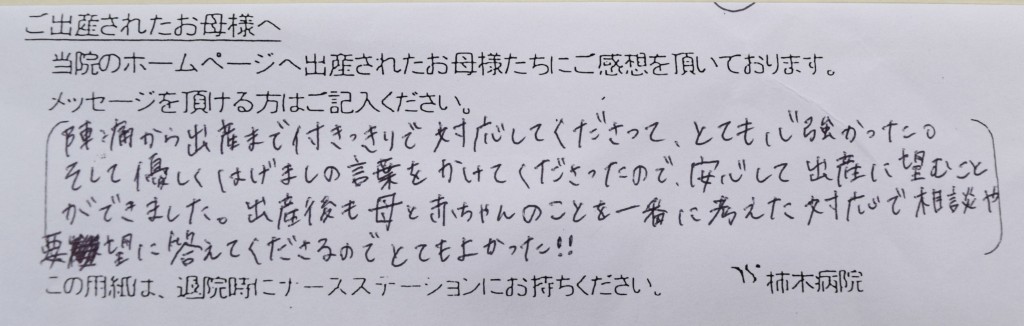 ご出産されたお母様へ
当院のホームページへ出産されたお母様たちにご感想を頂いております。
メッセージを頂ける方はご記入ください。
陣痛から出産まで付きっきりで対応してくださって、とても心強かった。
そして優しくはげましの言葉をかけてくださったので、安心して出産に望むこと
ができました。出産後も母と赤ちゃんのことを一番に考えた対応で相談や
要望に答えてくださるのでとてもよかった!!
この用紙は、退院時にナースステーションにお持ちください。
柿木病院